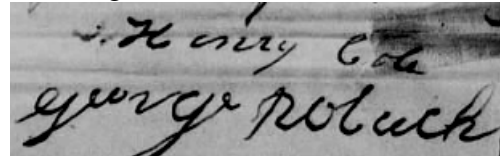 Henry Cole
George Robuck